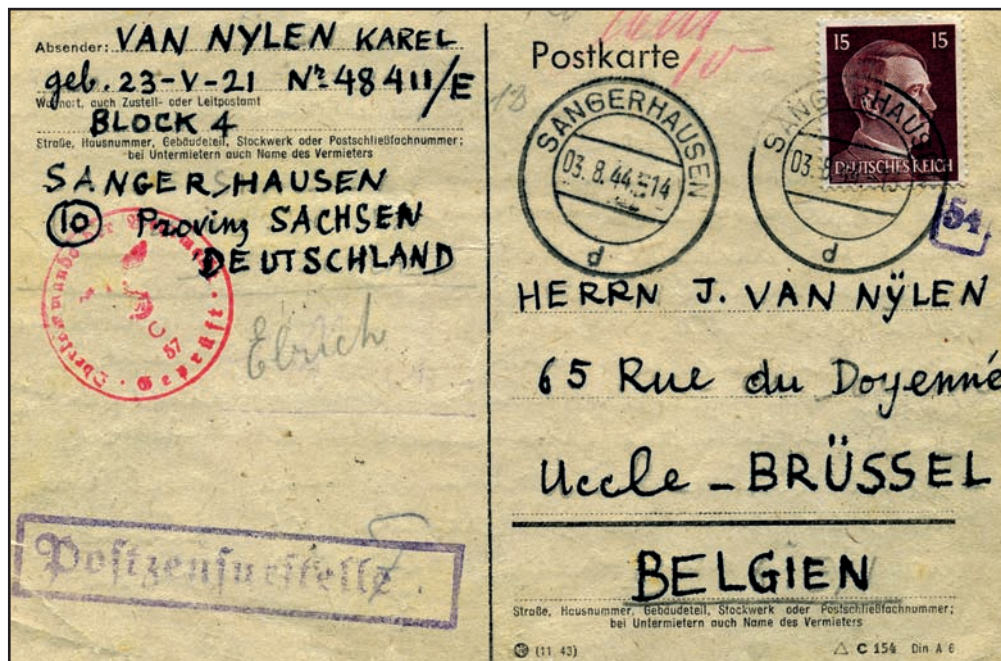 Absender: VAN NYLEN KAREL
geb. 23-V-21 Nr 48411/E
Wohnort, auch Zustell- oder Leitpostamt
BLOCK 4
Straße, Hausnummer, Gebäudeteil, Stockwerk oder Postschließfachnummer;
bei Untermietern auch Name des Vermieters
SANGERSHAUSEN
(10) Provinz SACHSEN
DEUTSCHLAND
Oberkommando der Wehrmacht
57
Elrich
Postzensurstelle
Postkarte
15 15
DEUTSCHES REICH
SANGERHAUSEN
03.8.44
14
d
SANGERHAUS
03.8.
d
54
HERRN J. VAN NŸLEN
65 Rue du Doyenné
Uccle - BRÜSSEL
BELGIEN
Straße, Hausnummer, Gebäudeteil, Stockwerk oder Postschließfachnummer;
bei Untermietern auch Name des Vermieters
(11 43)
C 154 Din A 6